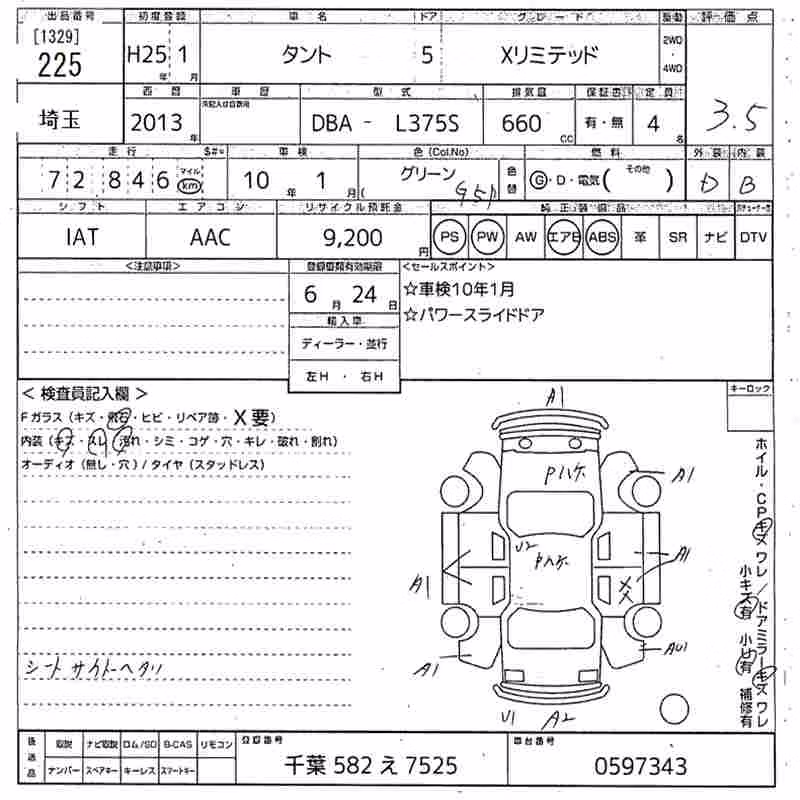 出品番号 初度登録 車名 ドア グレード 駆動 評価点
[1329] 225 H25年 1月 タント 5 Xリミテッド 2WD・4WD
西暦 車歴 型式 排気量 保証書 定員
埼玉 2013年 DBA - L375S 660CC 有・無 4名 3.5
走行 車検 色(Col.No) 燃料 外装 内装
72846 マイル km 10年 1月 グリーン 色替 G・D・電気( その他 ) D B
シフト エアコン リサイクル預託金 純正装備品
IAT AAC 9,200円 PS PW AW エアB ABS 革 SR ナビ DTV
<注意事項> 登録書類有効期限 <セールスポイント>
6月 24日 ☆車検10年1月
輸入車 ☆パワースライドドア
ディーラー・並行
左H・右H
<検査員記入欄> キーロック
Fガラス(キズ・飛石・ヒビ・リペア跡・X要)
内装(キズ・スレ・汚れ・シミ・コゲ・穴・キレ・破れ・割れ)
オーディオ(無し・穴)/タイヤ(スタッドレス)
A1
Pハケ A1
U2 Pハケ A1
A1 XX
A1 AU1
U1 A2
ホイル・CPキズ ワレ/ドアミラーキズ ワレ
小キズ有 小凹有 補修有
シートサイドヘタリ
後送品 取説 ナビ取説 ロム/SD B-CAS リモコン 登録番号 車台番号
ナンバー スペアキー キーレス スマートキー 千葉 582 え 7525 0597343